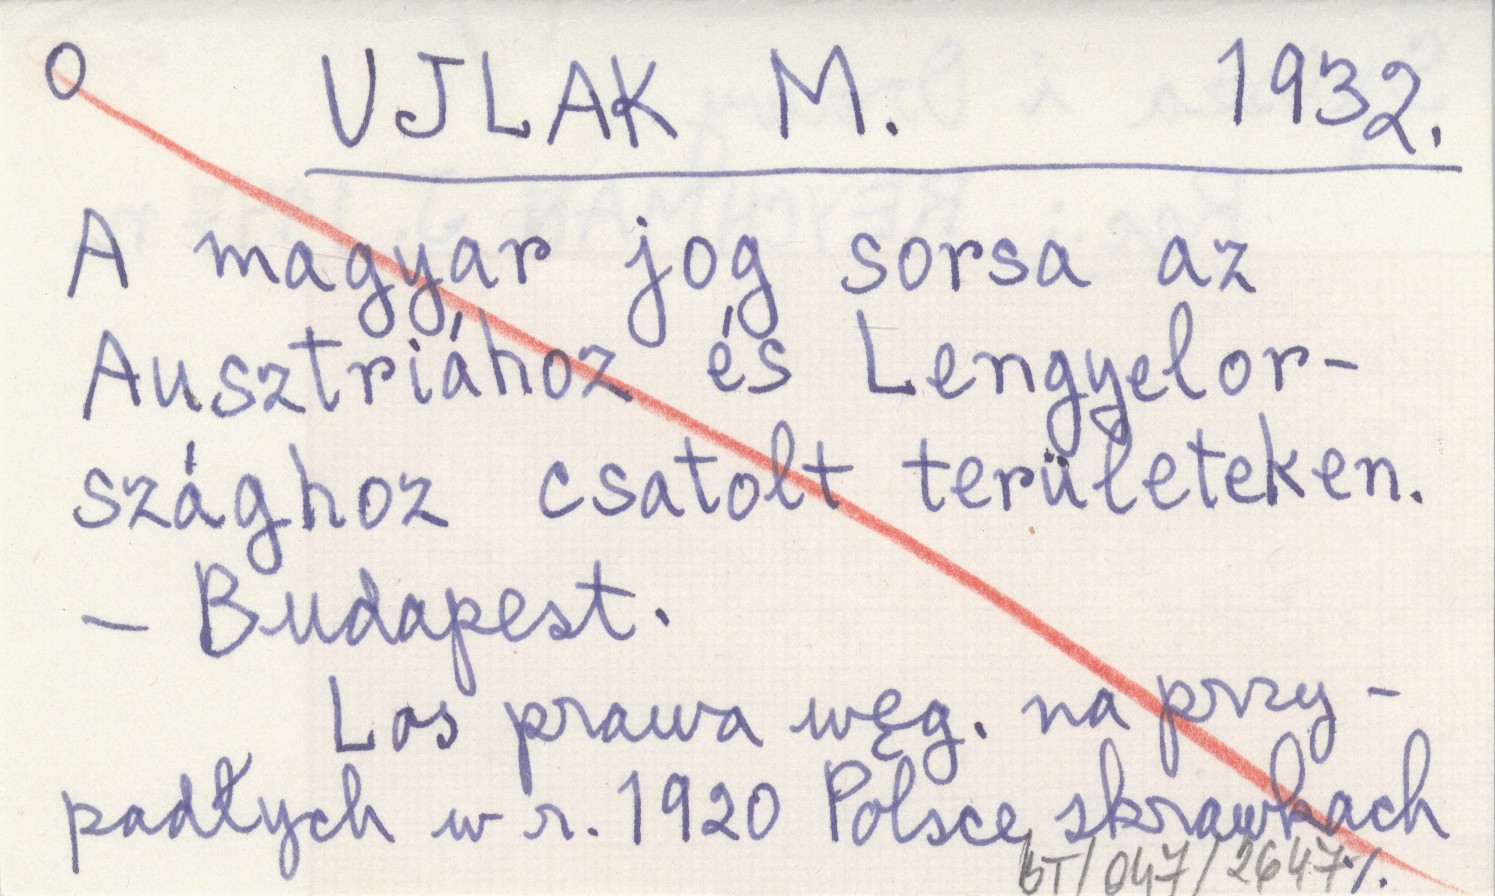 O UJLAK M. 1932.
A magyar jog sorsa az
Ausztriához és Lengyelor-
szághoz csatolt területeken.
— Budapest.
Los prawa węg. na przy-
padłych w r. 1920 Polsce skrawkach
BT/047/2647 ·/.